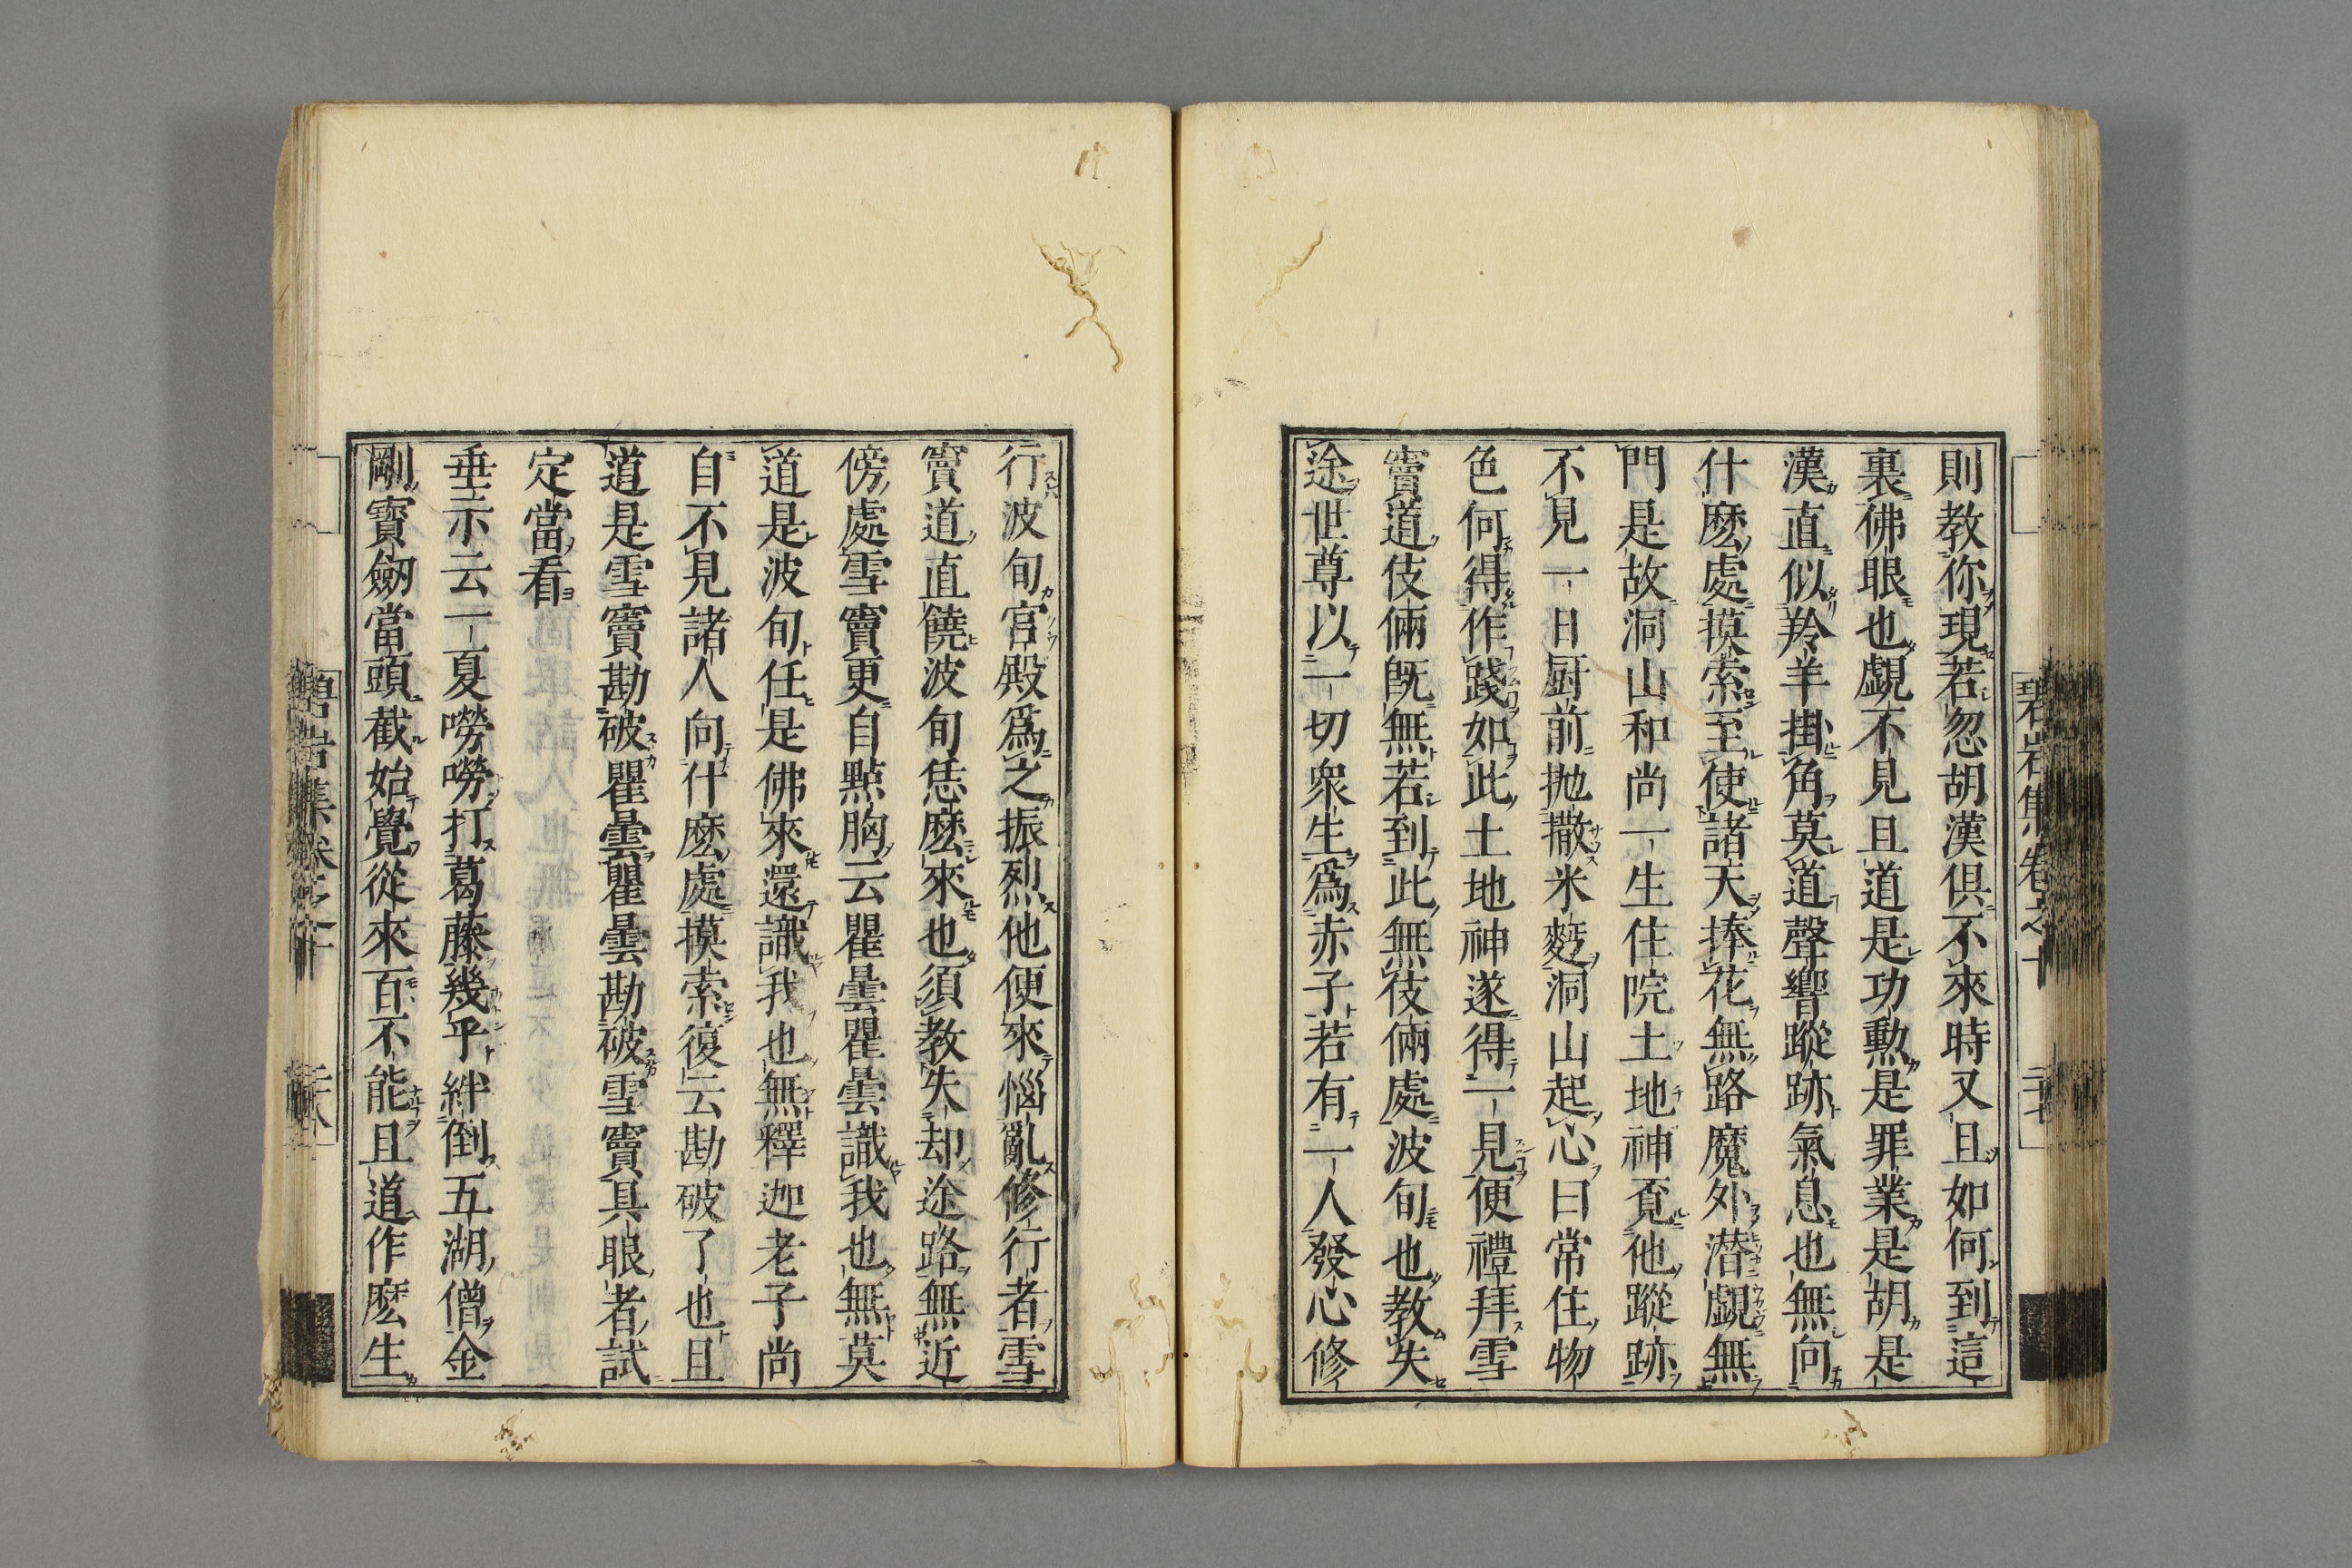 則教你現若忽胡漢俱不來時又且如何到這
裏佛眼也覷不見且道是功勲是罪業是胡是
漢直似羚羊掛角莫道聲響蹤跡氣息也無向
什麽處摸索至使諸天捧花無路魔外潜覷無
門是故洞山和尚一生住院土地神覓他蹤跡
不見一日厨前抛撒米麪洞山起心曰常住物
色何得作踐如此土地神遂得一見便禮拜雪
竇道伎倆既無若到此無伎倆處波旬也教失
途世尊以一切衆生爲赤子若有一人發心修
行波旬宮殿爲之振烈他便來惱亂修行者雪
竇道直饒波旬恁麽來也須教失却途路無近
傍處雪竇更自點胸云瞿曇瞿曇識我也無莫
道是波旬任是佛來還識我也無釋迦老子尚
自不見諸人向什麽處摸索復云勘破了也且
道是雪竇勘破瞿曇瞿曇勘破雪竇具眼者試
定當看
垂示云一夏嘮嘮打葛藤幾乎絆倒五湖僧金
剛寶劒當頭截始覺從來百不能且道作麽生
碧岩集卷之十